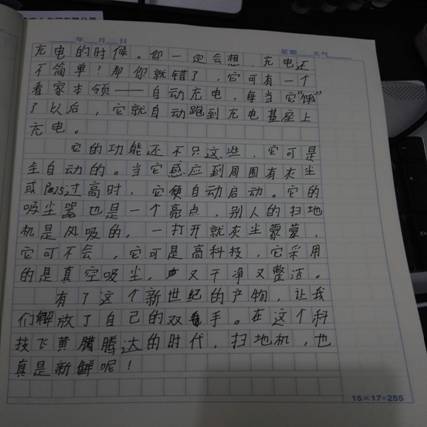 年 月 日 星期 天气
充电的时候。你一定会想，充电还
不简单？那你就错了，它可有一个
看家本领——自动充电，每当它“饿”
了以后，它就自动跑到充电基座上
充电。
它的功能还不只这些，它可是
全自动的。当它感应到周围有灰尘
或 过高时，它便自动启动。它的
吸尘器也是一个亮点，别人的扫地
机是风吸的。一打开就灰尘
它可不会，它可是高科技，它采用
的是真空吸尘，又干净又整洁。
有了这个新世纪的产物，让我
们解放了自己的双手。在这个科
技飞黄腾腾达的时代，扫地机，也
真是新鲜呢！
15×17=255